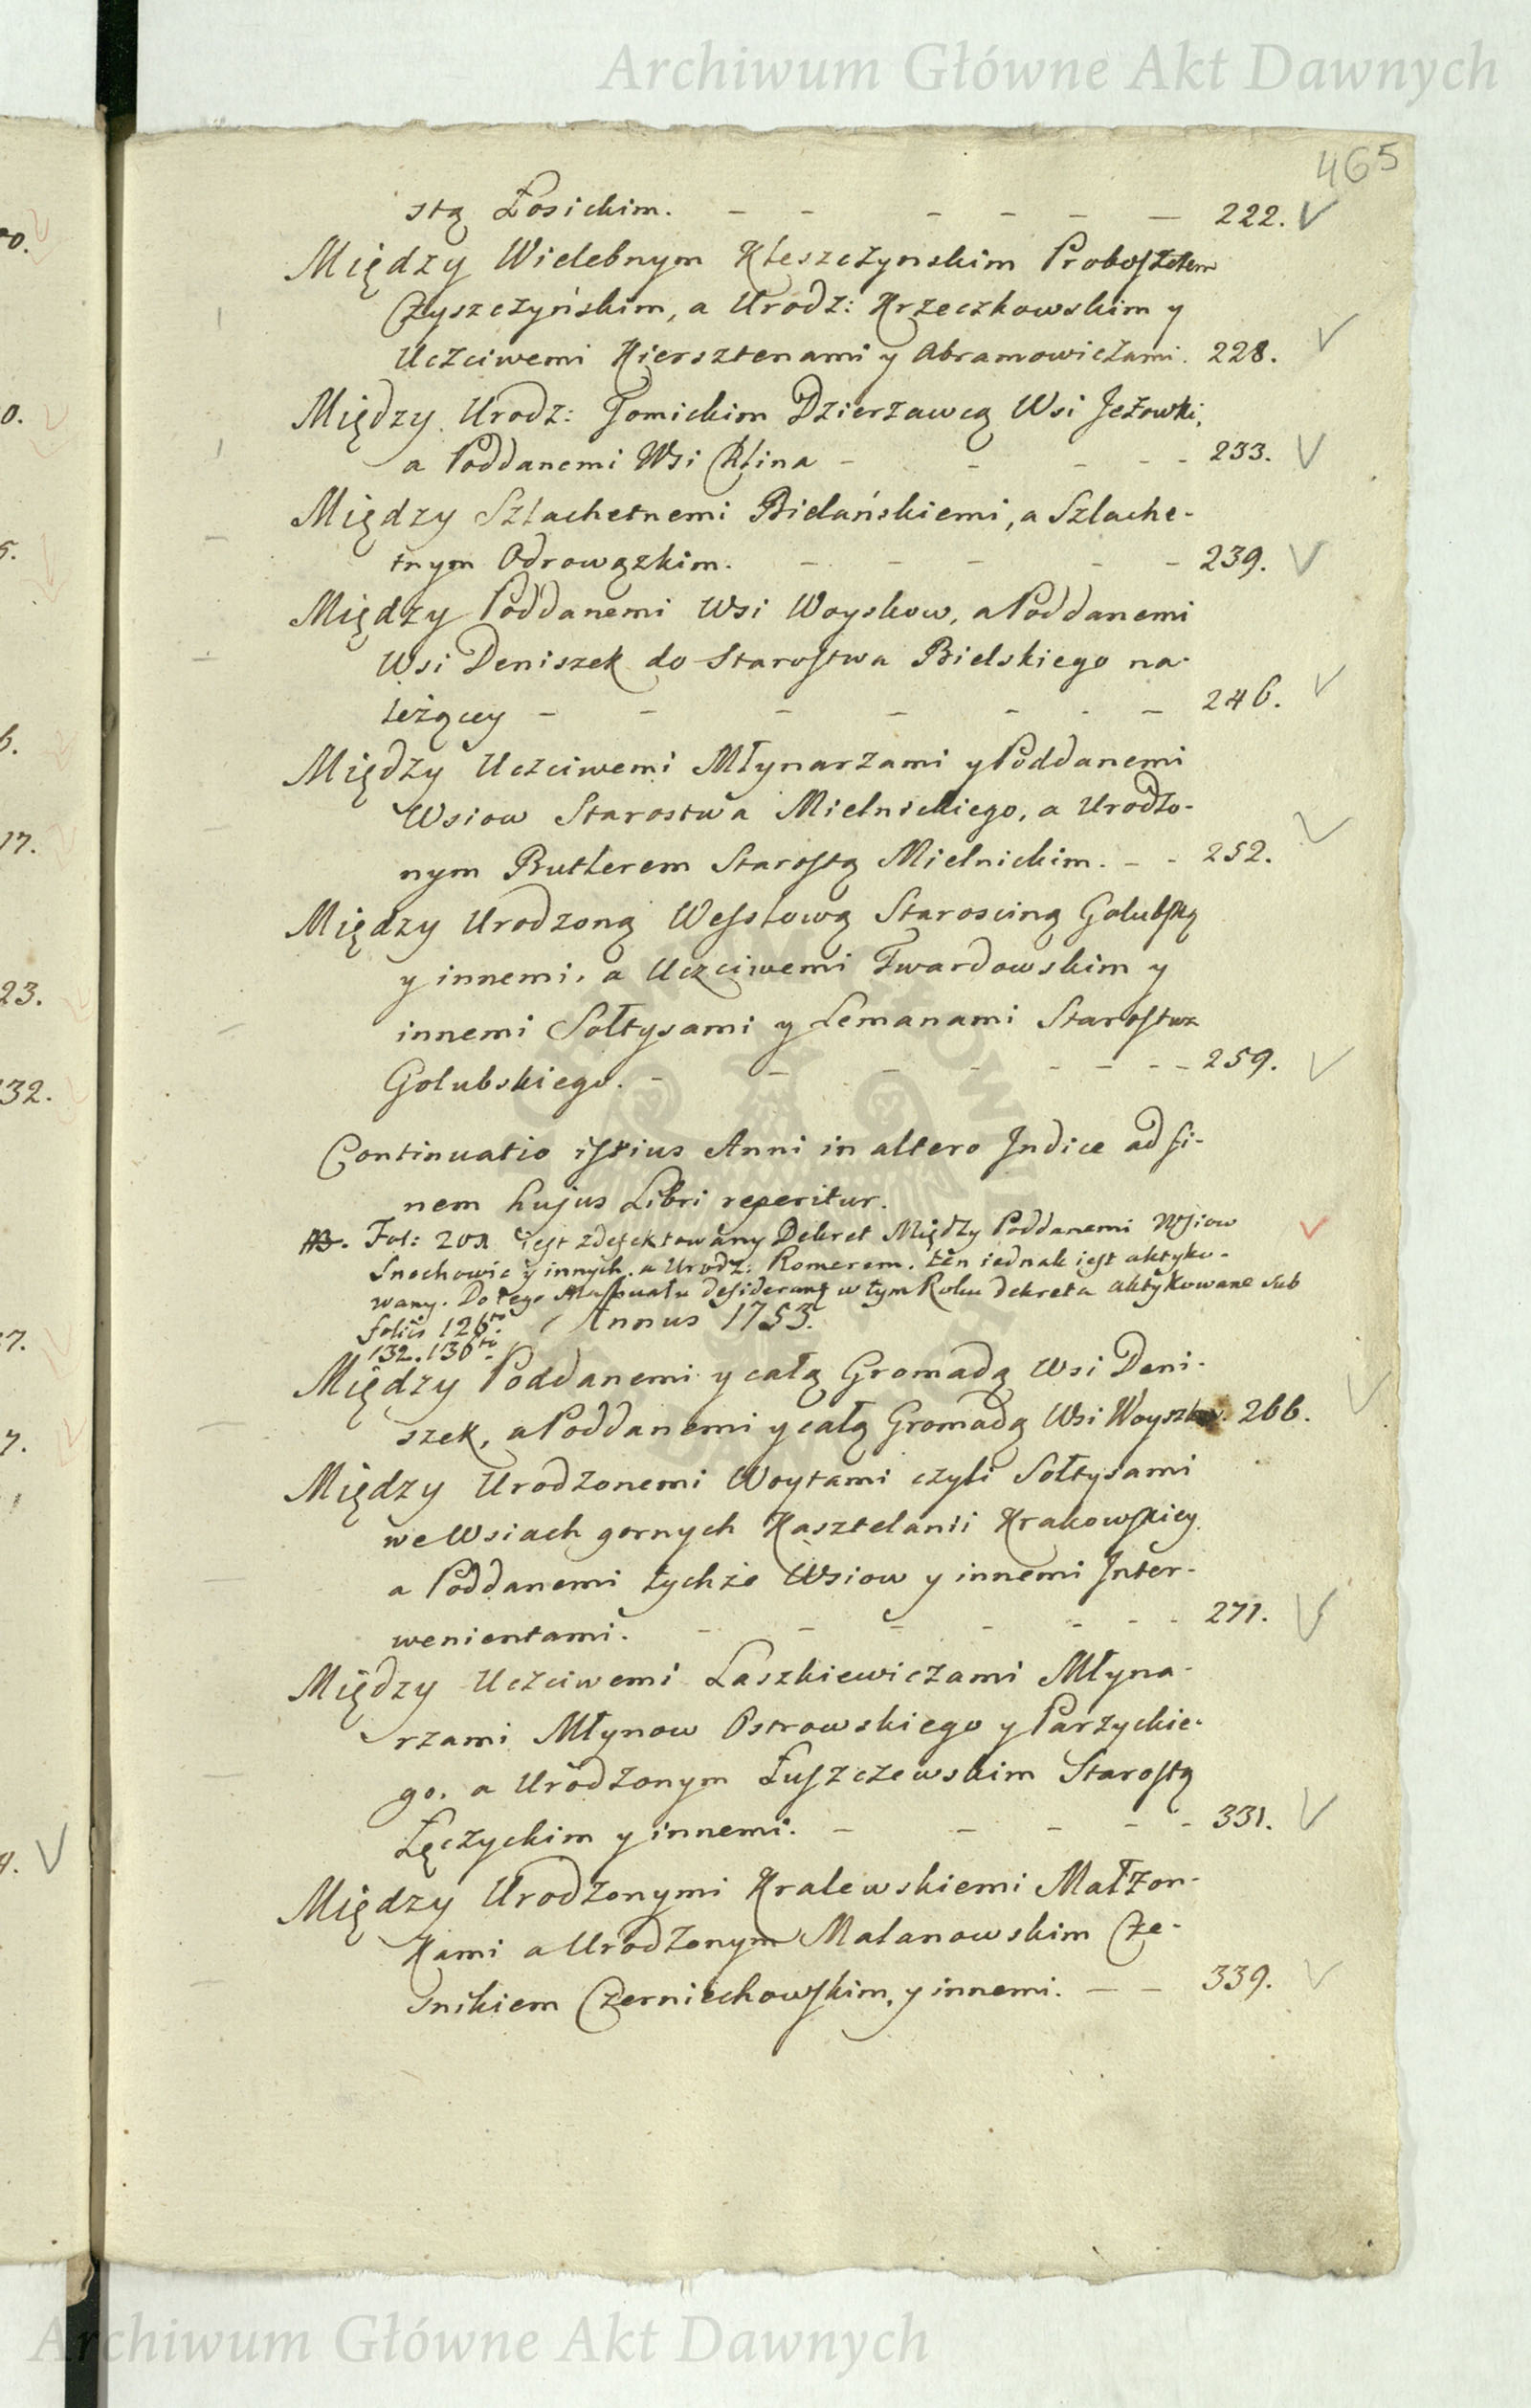 Archiwum Główne Akt Dawnych
465
stą Łosickim. - - - - - - 222.
Między Wielebnym Kleszczynskim Proboszczem
Czyszczyńskim, a Urodz: Krzeczkowskim y
Uczciwemi Kiersztenami y Abramowiczami. 228.
Między Urodz: Tomickim Dzierzawcą Wsi Jeżowki,
a Poddanemi Wsi Klina - - - - - 233.
Między Szlachetnemi Bielańskiemi, a Szlache-
tnym Odrowązkim. - - - - - 239.
Między Poddanemi Wsi Woyskow, a Poddanemi
Wsi Deniszek do Starostwa Bielskiego na-
leżącey - - - - - - - 246.
Między Uczciwemi Młynarzami y Poddanemi
Wsiow Starostwa Mielnickiego, a Urodzo-
nym Butlerem Starostą Mielnickim. - - 252.
Między Urodzoną Wesslową Starosciną Golubską
y innemi, a Uczciwemi Twardowskim y
innemi Sołtysami y Lemanami Starostwa
Golubskiego. - - - - - - - - 259.
Continuatio istius Anni in altero Indice ad fi-
nem hujus Libri reperitur.
NB. Fol: 201 iest zdefektowany Dekret Między Poddanemi Wsiow
Snochowic y innych, a Urodz: Romerem. ten iednak iest aktyko-
wany. Do tego desiderant w tym Roku dekreta aktykowane sub
foliis 126to.
Annus 1753.
132. 136to.
Między Poddanemi y całą Gromadą Wsi Deni-
szek, a Poddanemi y całą Gromadą Wsi 266.
Między Urodzonemi Woytami czyli Sołtysami
we Wsiach gornych Kasztelanii Krakowskiey
a Poddanemi tychże Wsiow y innemi Inter-
wenientami. - - - - - - - 271.
Między Uczciwemi Laszkiewiczami Młyna-
rzami Młynow Ostrowskiego y Parzyckie-
go, a Urodzonym Łuszczewskim Starostą
Łęczyckim y innemi. - - - - - 331.
Między Urodzonymi Kralewskiemi Małżon-
kami a Urodzonym Malanowskim Cze-
snikiem Czerniechowskim, y innemi. - - 339.
Archiwum Główne Akt Dawnych